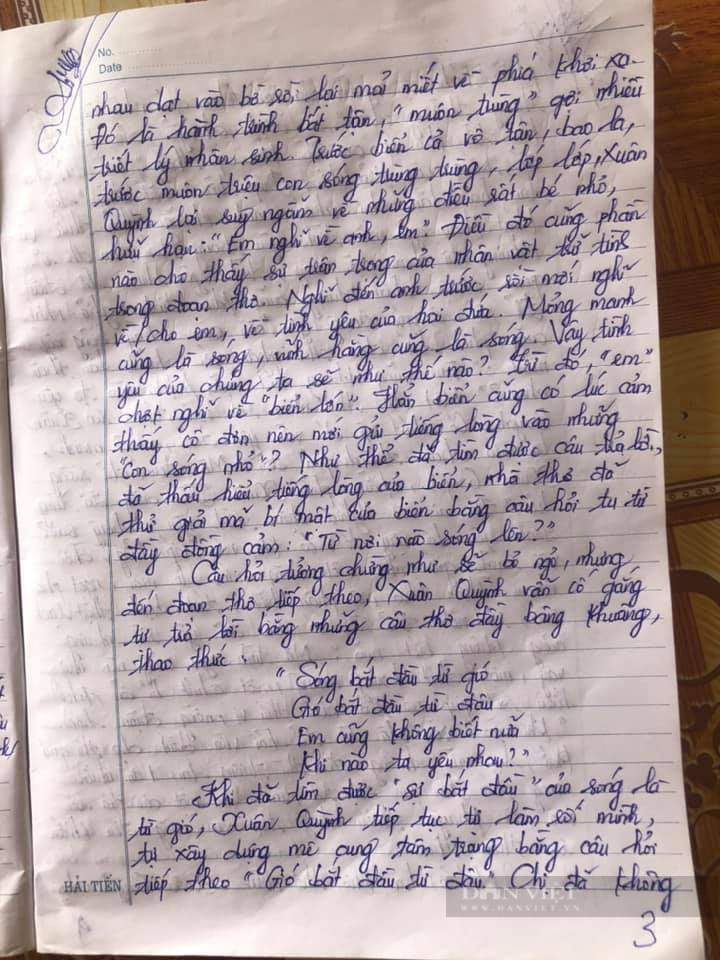 No.
Date
nhau dạt vào bờ rồi lại mải miết về phiá khơi xa.
Đó là hành trình bất tận, "muôn trùng" gợi nhiều
triết lý nhân sinh. Trước biển cả vô tận, bao la,
trước muôn triệu con sóng trùng trùng, lớp lớp, Xuân
Quỳnh lại suy ngẫm về những điều rất bé nhỏ,
hữu hạn: "Em nghĩ về anh, em". Điều đó cũng phần
nào cho thấy sự trân trọng của nhân vật trữ tình
trong đoạn thơ. Nghĩ đến anh trước rồi mới nghĩ
về cho em, về tình yêu của hai đứa. Mỏng manh
cũng là sóng, vĩnh hằng cũng là sóng. Vậy tình
yêu của chúng ta sẽ như thế nào? Từ đó, "em"
chợt nghĩ về "biển lớn". Hẳn biển cũng có lúc cảm
thấy cô đơn nên mới gửi tiếng lòng vào những
"con sóng nhỏ"? Như thể đã tìm được câu trả lời,
đã thấu hiểu tiếng lòng của biển, nhà thơ đã
thử giải mã bí mật của biển bằng câu hỏi tu từ
đầy đồng cảm: "Từ nơi nào sóng lên?"
Câu hỏi tưởng chừng như sẽ bỏ ngỏ, nhưng
đến đoạn thơ tiếp theo, Xuân Quỳnh vẫn cố gắng
tự trả lời bằng những câu thơ đầy bâng khuâng,
thao thức:
"Sóng bắt đầu từ gió
Gió bắt đầu từ đâu
Em cũng không biết nữa
Khi nào ta yêu nhau?"
Khi đã tìm được "sự bắt đầu" của sóng là
từ gió, Xuân Quỳnh tiếp tục tự làm rối mình,
tự xây dựng mê cung tâm trạng bằng câu hỏi
tiếp theo "Gió bắt đầu từ đâu". Chị đã không
HẢI TIẾN
DÂN VIỆT
WWW.DANVIET.VN
3